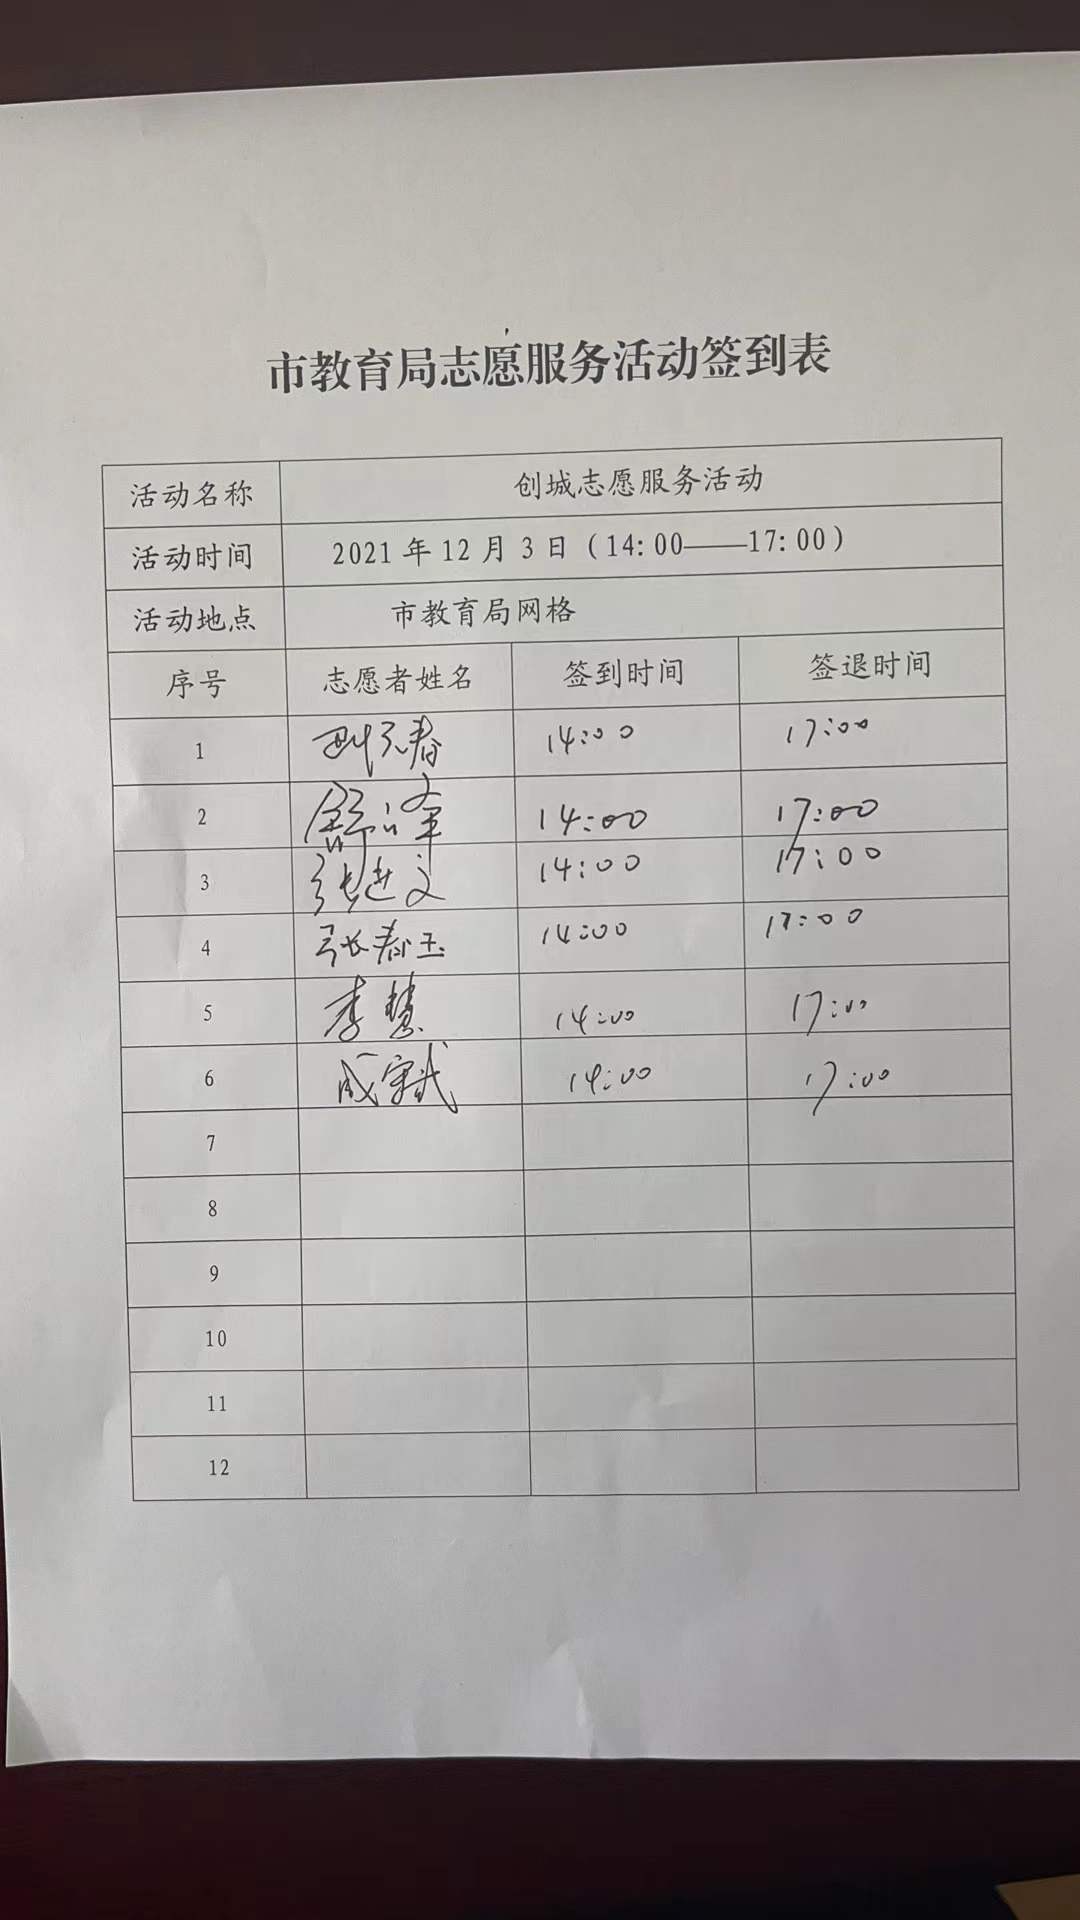 市教育局志愿服务活动签到表
活动名称 创城志愿服务活动
活动时间 2021年12月3日（14:00——17:00）
活动地点 市教育局网格
序号 志愿者姓名 签到时间 签退时间
1 14:00 17:00
2 舒泽军 14:00 17:00
3 张进文 14:00 17:00
4 张春玉 14:00 17:00
5 李慧 14:00 17:00
6 成守武 14:00 17:00
7
8
9
10
11
12